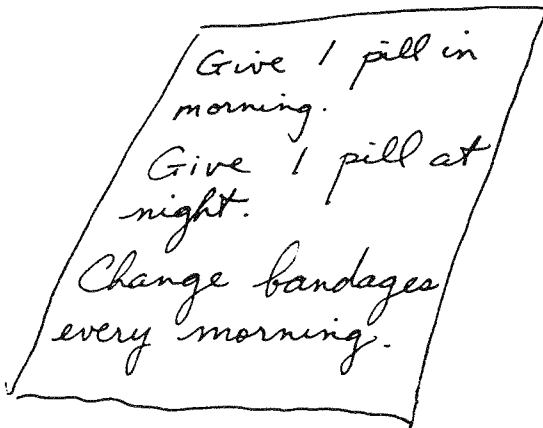 Give 1 pill in
morning.
Give 1 pill at
night.
Change bandages
every morning.